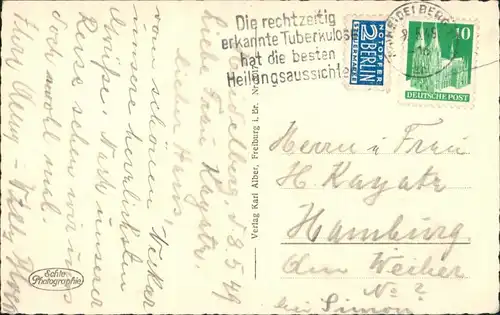 Die rechtzeitig
erkannte Tuberkulose
hat die besten
Heilungsaussichten
NOTOPFER
2 BERLIN
STEUERMARKE
HEIDELBERG
10
DEUTSCHE POST
Heidelberg, d. 8.5.49
Liebe Frau Kayatz,
lieber Hans,
vom schönen Neckar
unsere herzlichsten
Grüße. Nach unserer
Reise sehen wir uns
doch wohl mal.
Ihre
Willy
Verlag Karl Alber, Freiburg i. Br.
Echte
Photographie
Herrn u. Frau
H. Kayatz
Hamburg
Weiher
No ?
bei Simon